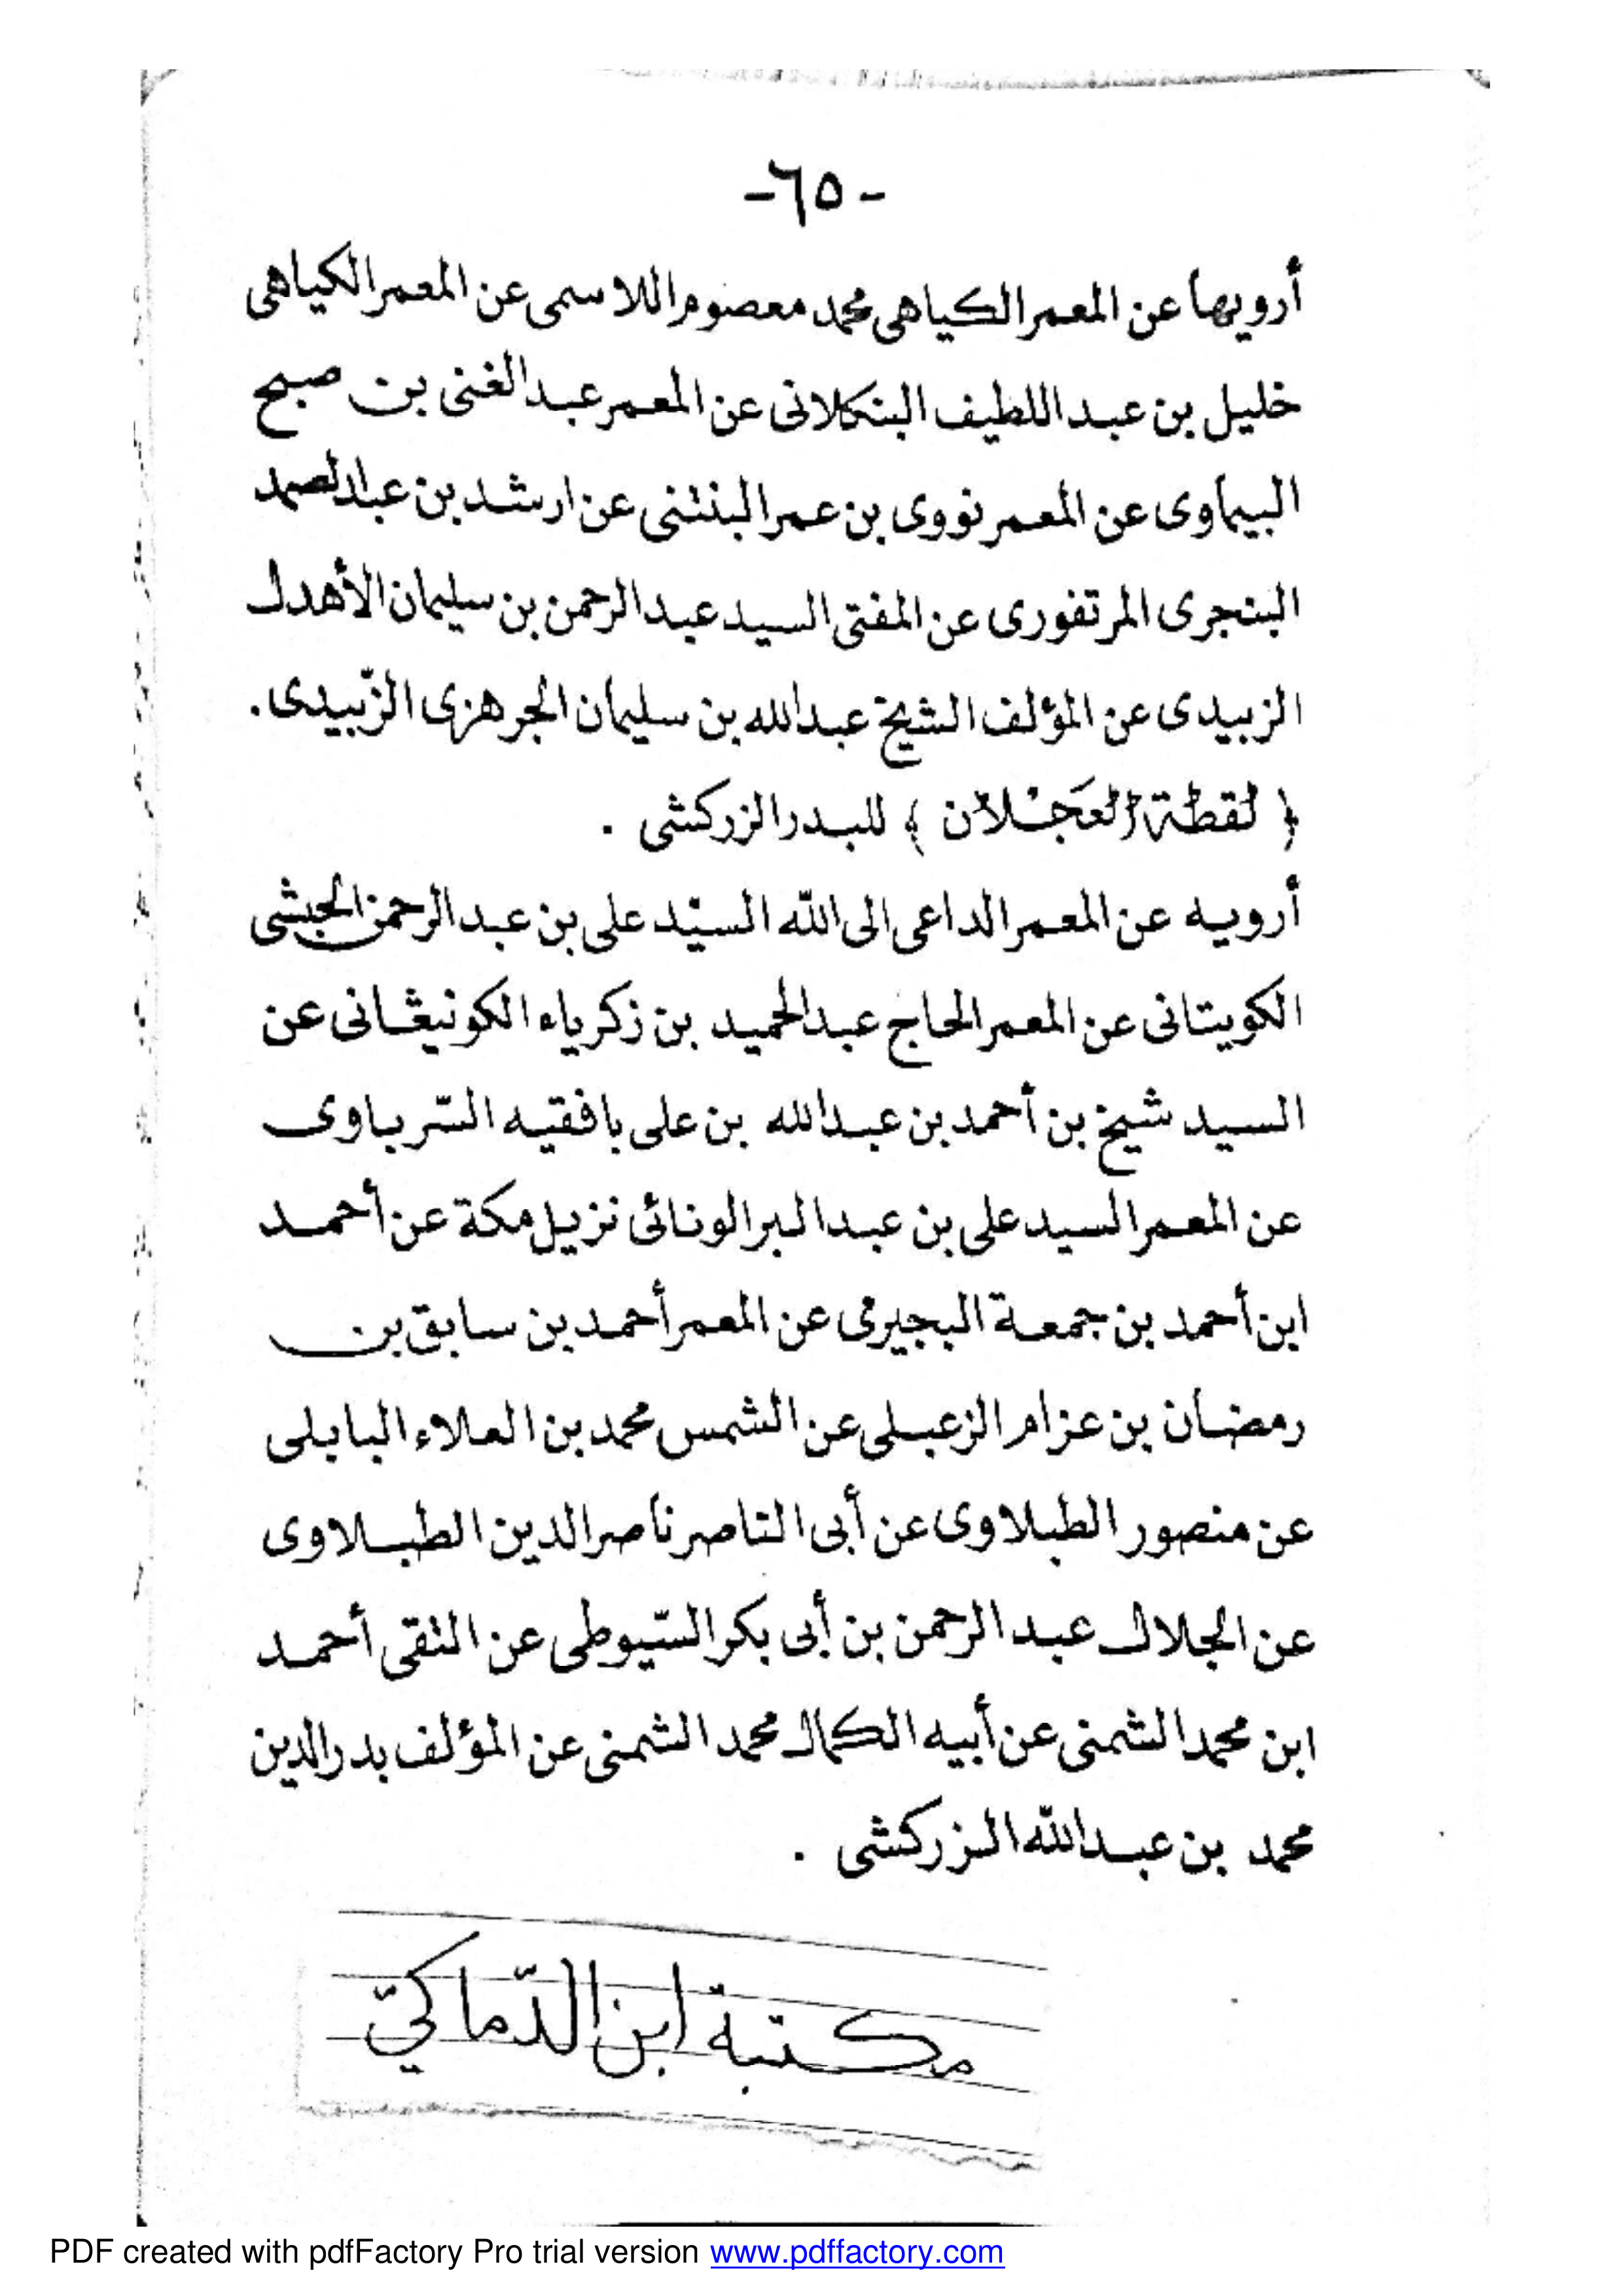 -٦٥-
أرويها عن المعمر الكياهى محمد معصوم اللاسمى عن المعمر الكياهى
خليل بن عبد اللطيف البنكلانى عن المعمر عبد الغنى بن صبح
البيماوى عن المعمر نووى بن عمر البنتنى عن ارشد بن عبد الصمد
البنجرى المرتفورى عن المفتى السيد عبد الرحمن بن سليمان الأهدل
الزبيدى عن المؤلف الشيخ عبد الله بن سليمان الجرهزى الزّبيدى.
﴿ لقطة العَجْلان ﴾ للبدر الزركشى .
أرويه عن المعمر الداعى الى الله السيّد على بن عبد الرحمن الحبشى
الكويتانى عن المعمر الحاج عبد الحميد بن زكرياء الكونيڠانى عن
السيد شيخ بن أحمد بن عبد الله بن على بافقيه السّرباوى
عن المعمر السيد على بن عبد البر الونائى نزيل مكة عن أحمد
ابن أحمد بن جمعة البجيرمى عن المعمر أحمد بن سابق بن
رمضان بن عزام الزعبلى عن الشمس محمد بن العلاء البابلى
عن منصور الطبلاوى عن أبى الناصر ناصر الدين الطبلاوى
عن الجلال عبد الرحمن بن أبى بكر السّيوطى عن التقى أحمد
ابن محمد الشمنى عن أبيه الكمال محمد الشمنى عن المؤلف بدر الدين
محمد بن عبد الله الزركشى .
مكتبة ابن الدّماكيّ
PDF created with pdfFactory Pro trial version www.pdffactory.com